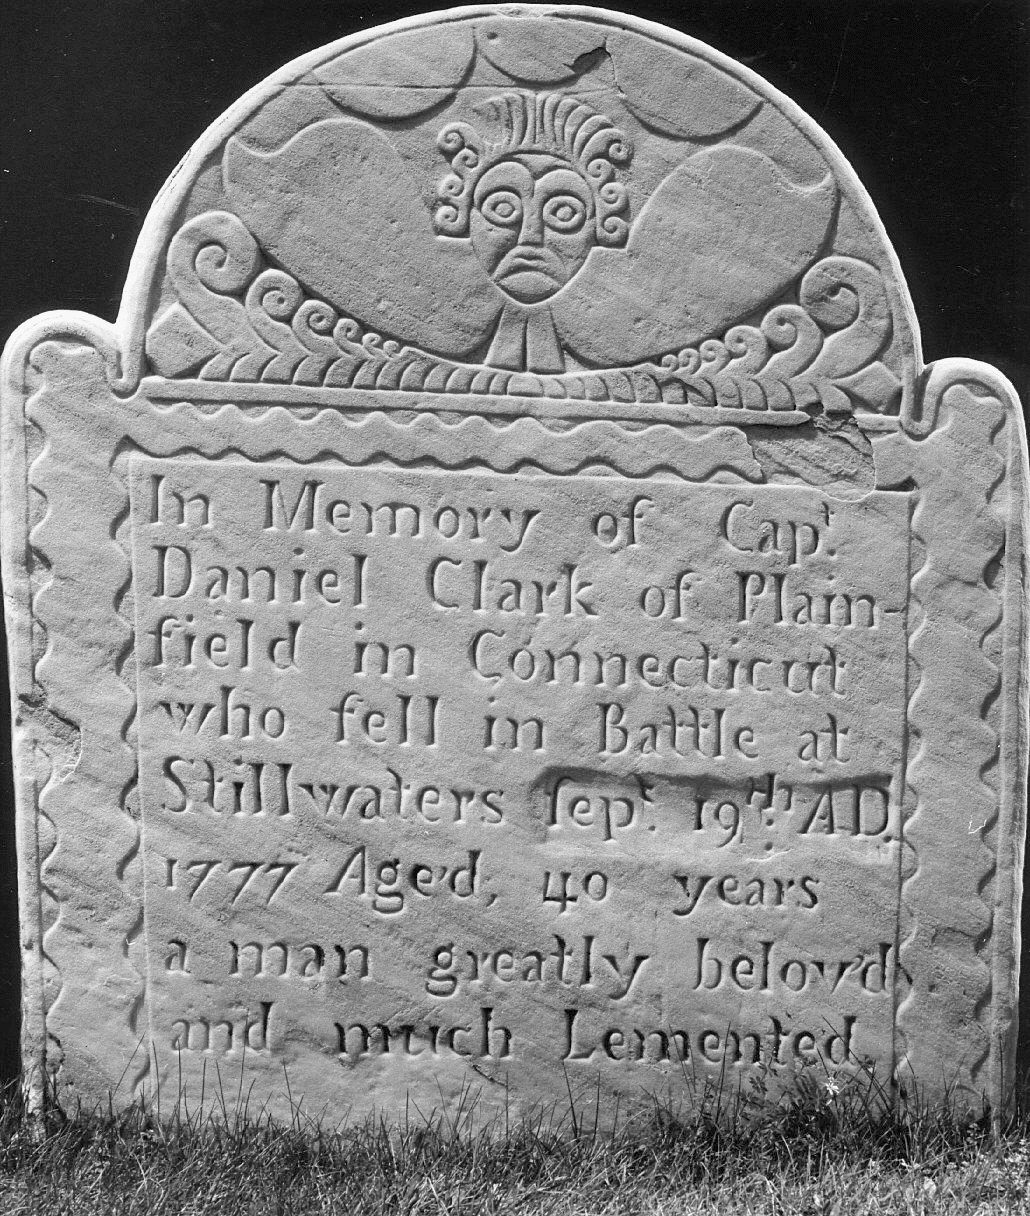 In Memory of Capᵗ.
Daniel Clark of Plain-
field in Connecticut
who fell in Battle at
Stillwaters ſepᵗ. 19ᵗʰ. AD.
1777 Age'd, 40 years
a man greatly belov'd
and much Lemented